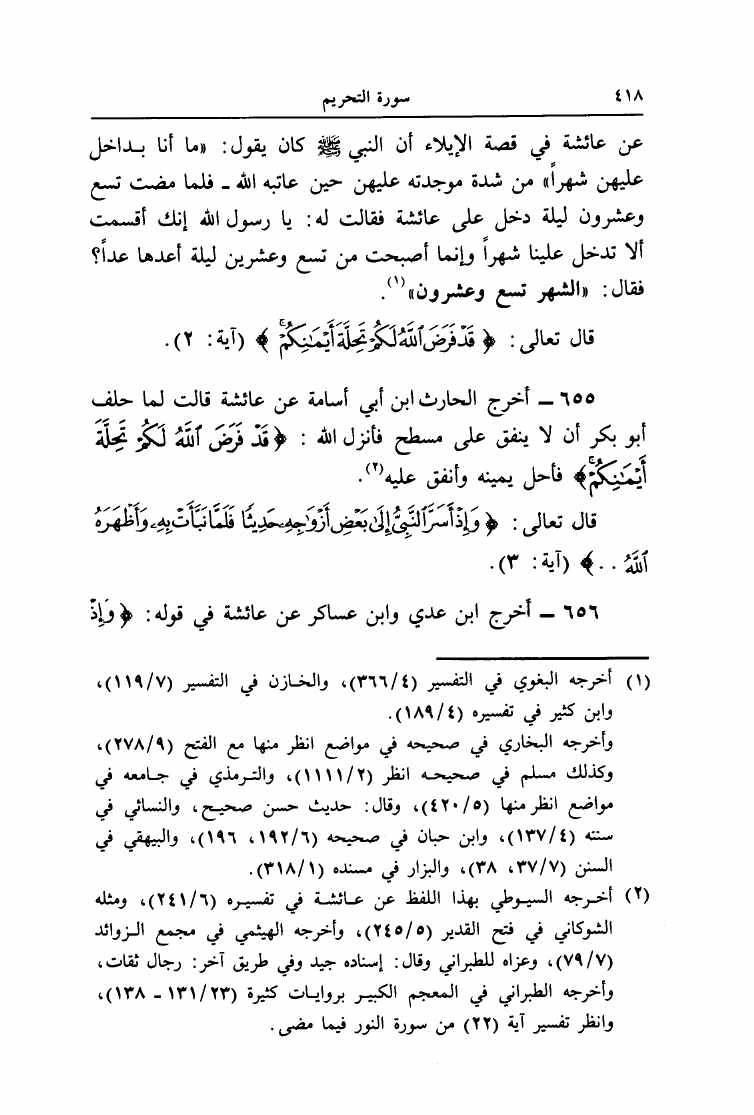 ٤١٨ سورة التحريم
عن عائشة في قصة الإيلاء أن النبي ﷺ كان يقول: «ما أنا بـداخل
عليهن شهراً» من شدة موجدته عليهن حين عاتبه الله ـ فلما مضت تسع
وعشرون ليلة دخل على عائشة فقالت له: يا رسول الله إنك أقسمت
ألا تدخل علينا شهراً وإنما أصبحت من تسع وعشرين ليلة أعدها عداً؟
فقال: «الشهر تسع وعشرون»(١).
قال تعالى: ﴿ قَدْ فَرَضَ ٱللَّهُ لَكُمْ تَحِلَّةَ أَيْمَـٰنِكُمْ ۚ ﴾ (آية: ٢).
٦٥٥ ـ أخرج الحارث ابن أبي أسامة عن عائشة قالت لما حلف
أبو بكر أن لا ينفق على مسطح فأنزل الله : ﴿ قَدْ فَرَضَ ٱللَّهُ لَكُمْ تَحِلَّةَ
أَيْمَـٰنِكُمْ ۚ ﴾ فأحل يمينه وأنفق عليه(٢).
قال تعالى: ﴿ وَإِذْ أَسَرَّ ٱلنَّبِيُّ إِلَىٰ بَعْضِ أَزْوَٰجِهِۦ حَدِيثًا فَلَمَّا نَبَّأَتْ بِهِۦ وَأَظْهَرَهُ
ٱللَّهُ . . ﴾ (آية: ٣).
٦٥٦ ـ أخرج ابن عدي وابن عساكر عن عائشة في قوله: ﴿ وَإِذْ
(١) أخرجه البغوي في التفسير (٣٦٦/٤)، والخـازن في التفسير (١١٩/٧)،
وابن كثير في تفسيره (١٨٩/٤).
وأخرجه البخاري في صحيحه في مواضع انظر منها مع الفتح (٢٧٨/٩)،
وكذلك مسلم في صحيحـه انظر (١١١١/٢)، والتـرمذي في جـامعه في
مواضع انظر منها (٤٢٠/٥)، وقال: حديث حسن صحيـح، والنسائي في
سننه (١٣٧/٤)، وابن حبان في صحيحه (١٩٢/٦، ١٩٦)، والبيهقي في
السنن (٣٧/٧، ٣٨)، والبزار في مسنده (٣١٨/١).
(٢) أخـرجه السيـوطي بهذا اللفظ عن عـائشـة في تفسيـره (٢٤١/٦)، ومثله
الشوكاني في فتح القدير (٢٤٥/٥)، وأخرجه الهيثمي في مجمع الـزوائد
(٧٩/٧)، وعزاه للطبراني وقال: إسناده جيد وفي طريق آخر: رجال ثقات،
وأخرجه الطبراني في المعجم الكبيـر بروايـات كثيرة (١٣١/٢٣ ـ ١٣٨)،
وانظر تفسير آية (٢٢) من سورة النور فيما مضى.